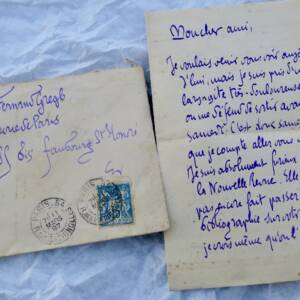 Fernand Gregh
Revue de Paris
85 bis faubourg St Honoré
Mon cher ami,
Je voulais venir vous voir auj
J'lui, mais je suis pris d'
laryngite très douloureuse
on me défend de sortir avant
samedi. C'est donc samedi
que je compte aller vous
Je suis absolument
la Nouvelle Revue. Elle
pas encore fait passer
bibliographie sur votre
je crois même qu'on l'